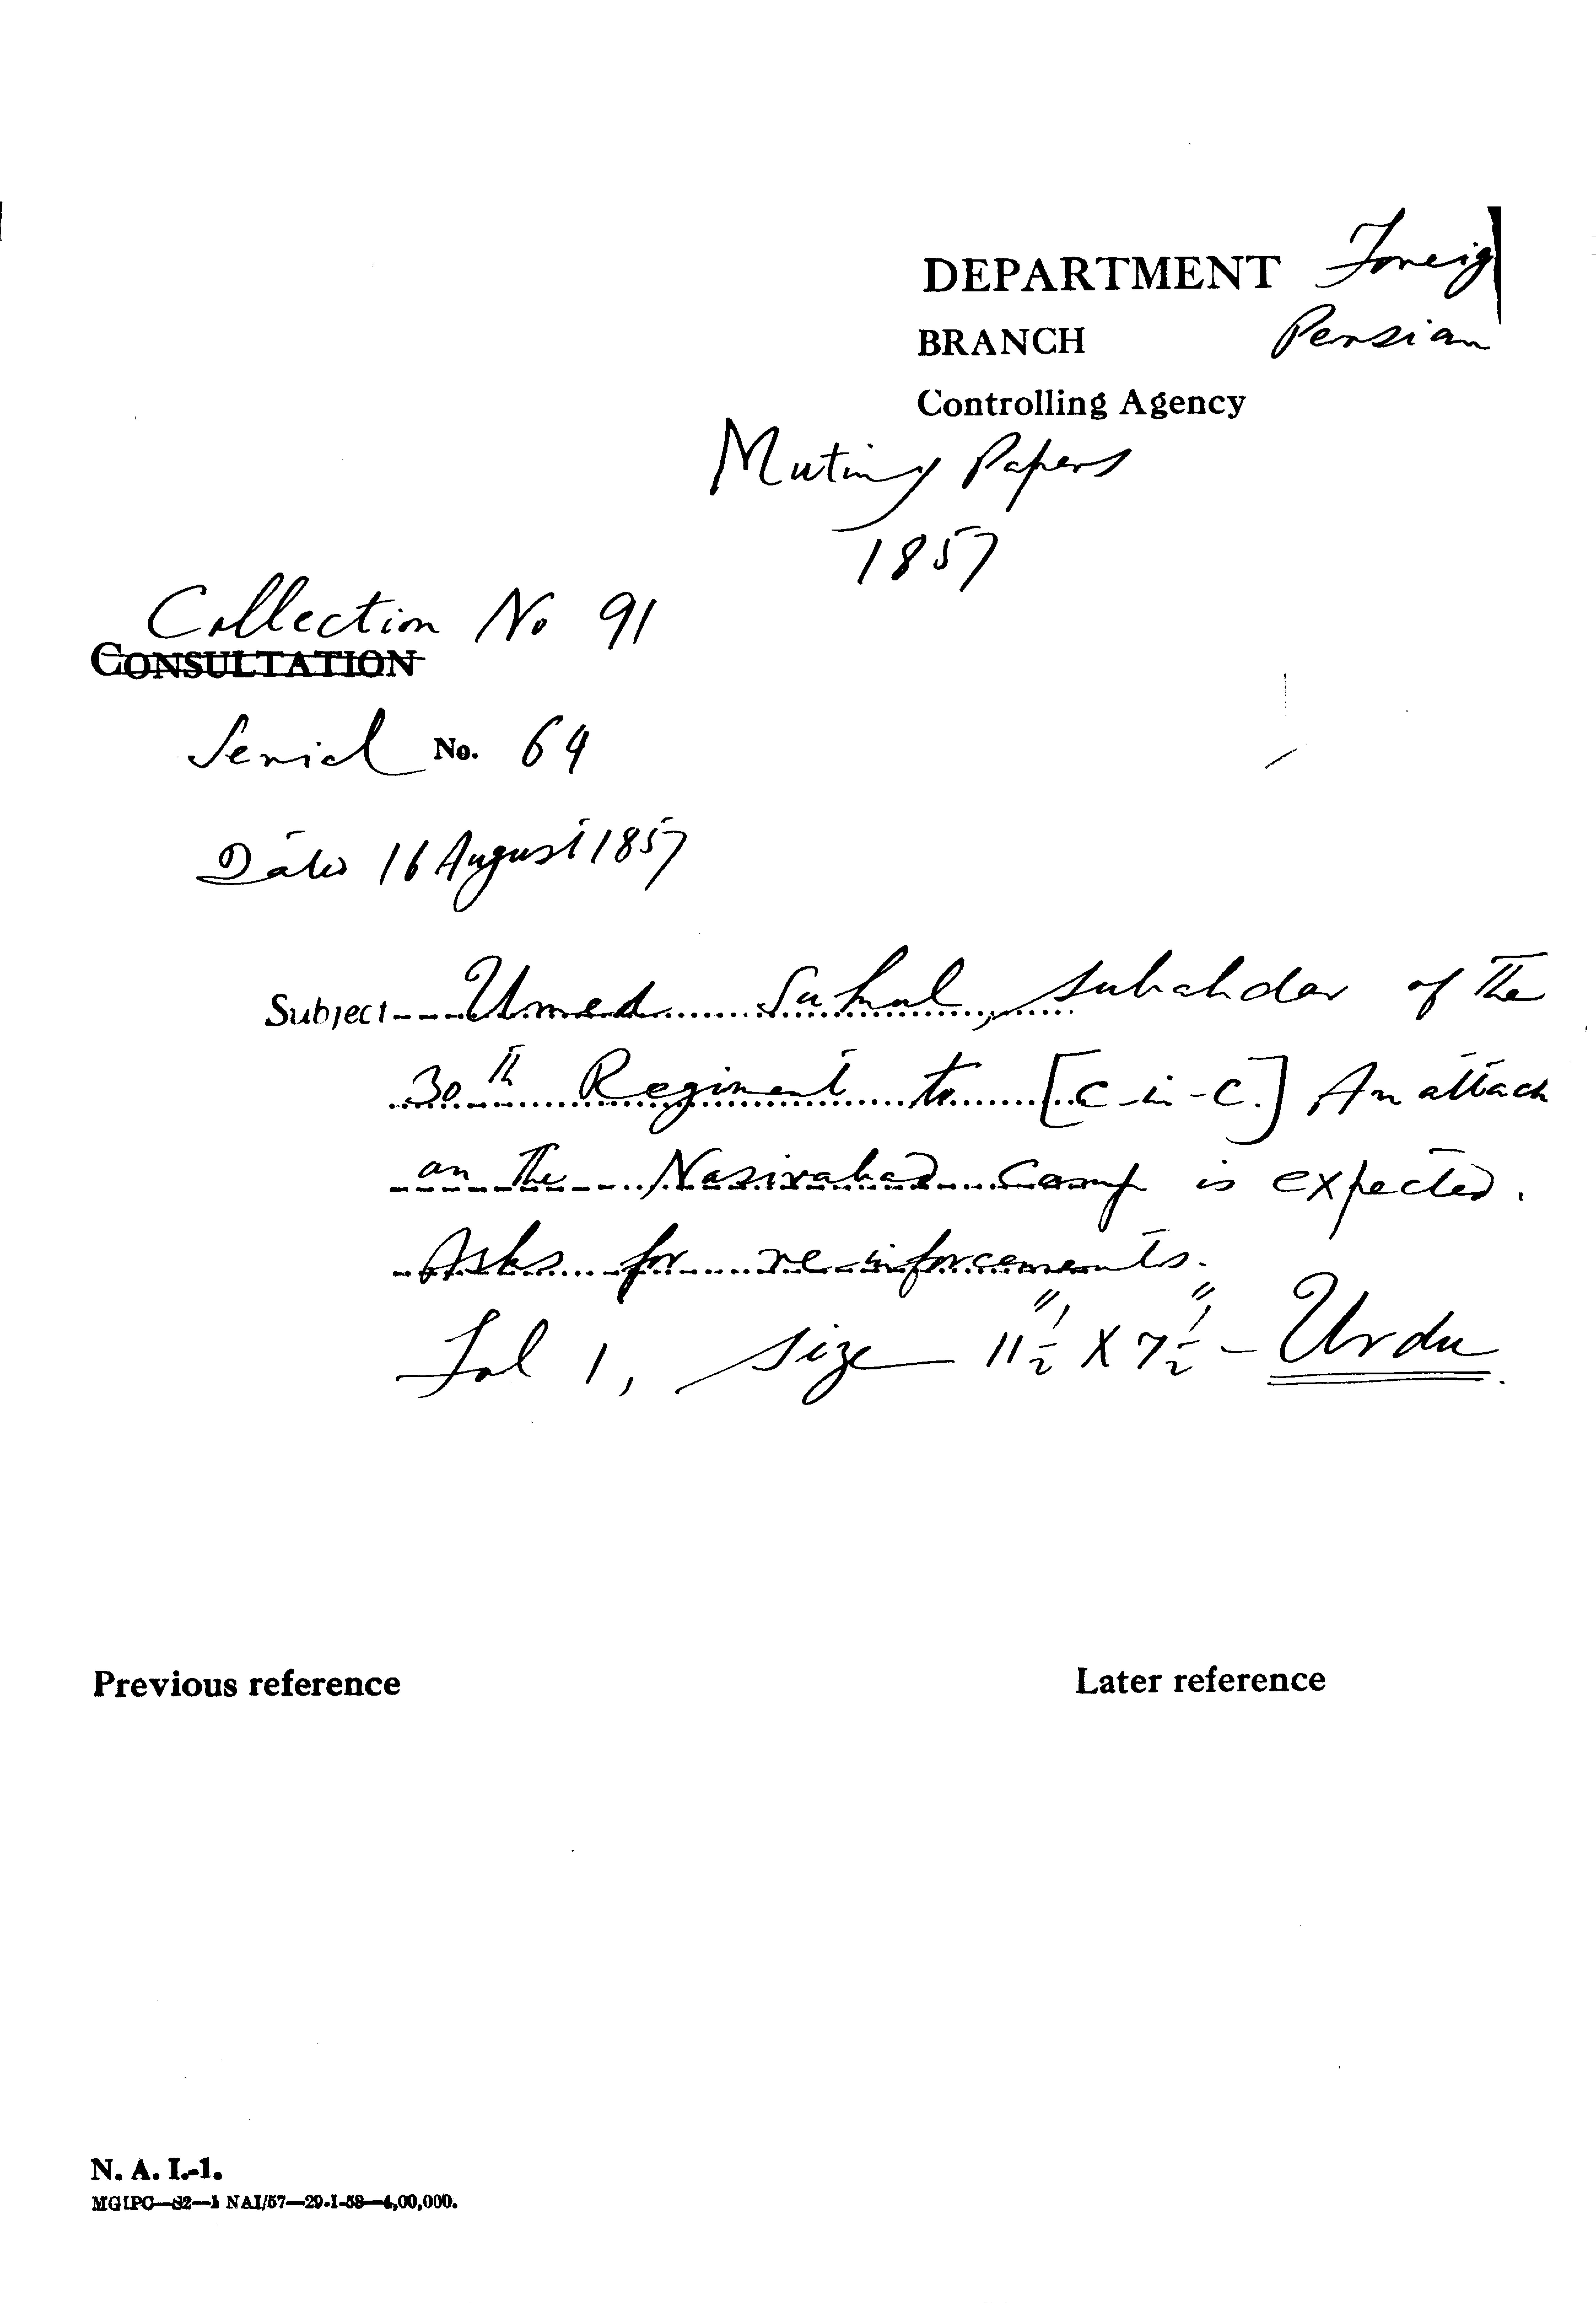 DEPARTMENT Foreig
BRANCH Persian
Controlling Agency
Mutiny Papers
1857
Collection No 91
CONSULTATION
Serial No. 64
Dated 16 August 1857
Subject Umed Sukul, subahdar of the
30th Regiment to [C-in-C.] An attack
on the Nasirabad Camp is expected.
Asks for re-inforcements.
Fol 1, size 11½" X 7½" - Urdu
Previous reference
Later reference
N. A. I.-1.
MGIPC—82—1 NAI/57—29-1-58—4,00,000.